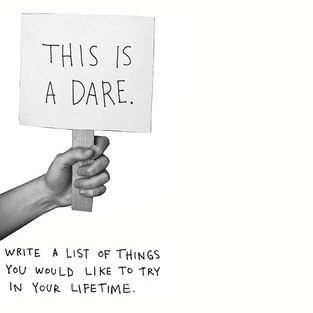 THIS IS
A DARE.
WRITE A LIST OF THINGS
YOU WOULD LIKE TO TRY
IN YOUR LIFETIME.